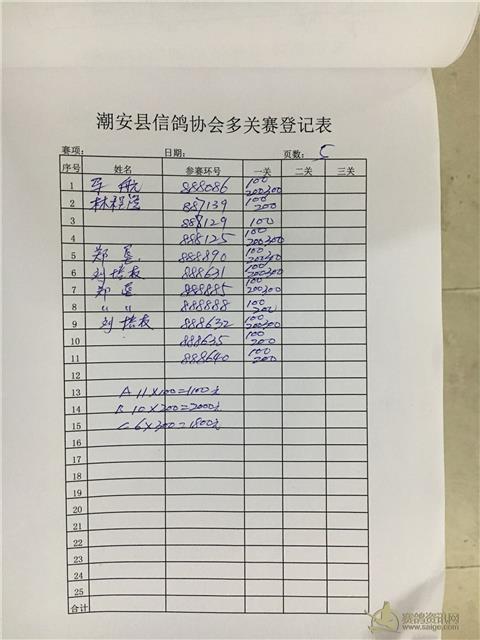 潮安县信鸽协会多关赛登记表
赛项： 日期： 页数： 5
序号 姓名 参赛环号 一关 二关 三关
1 军航 888086 100 200300
2 887139 100 200
3 888129 100
4 888125 100 200300
5 888890 100 200300
6 888631 100 200300
7 888885 100 200300
8 〃 〃 888888 100 200
9 888632 100 200300
10 888635 100 200
11 888640 100 200
12
13 A 11×100=1100元
14 B 10×200=2000元
15 C 6×300=1800元
16
17
18
19
20
21
22
23
24
25
合计
赛鸽资讯网
www.saige.com